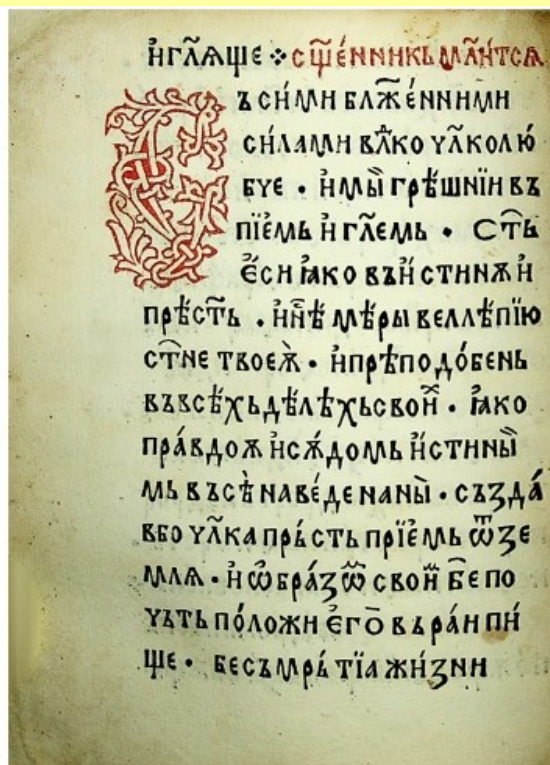 и҆гл҃ѧщє ⁘ ст҃є́нникь мл҃и́тсꙗ
ъ си́ми блж҃є́нними
си́лами влⷣко чл҃колю́
бчє · и҆мы̀ грѣ́шнїи въ
пїє́мь и҆ гл҃ємь · ст҃ь
є҆си ꙗ҆ко въи́стинѫ и҆
прѣст҃ь · и҆н҃ѣ мѣ́ры вєллѣпїю
ст҃нє твоєѫ̀ · и҆прѣподо́бєнь
въвсѣ́хьдѣ́лѣхьсвоиⷯ · ꙗ҆ко
пра́вдоѫ и҆сѫ́домь и҆́стины̀
мь въсѣ̀ навє́дє наны̀ · създа́
вбо чл҃ка пръ́сть прїє́мь ѿзє
млѧ · и҆ ѡ҆бра́зѡⷨ своиⷨ б҃є по
чьть по́ложи є҆го̀ въра́и пи́
щє · бєсъмръ́тїа жи́зни